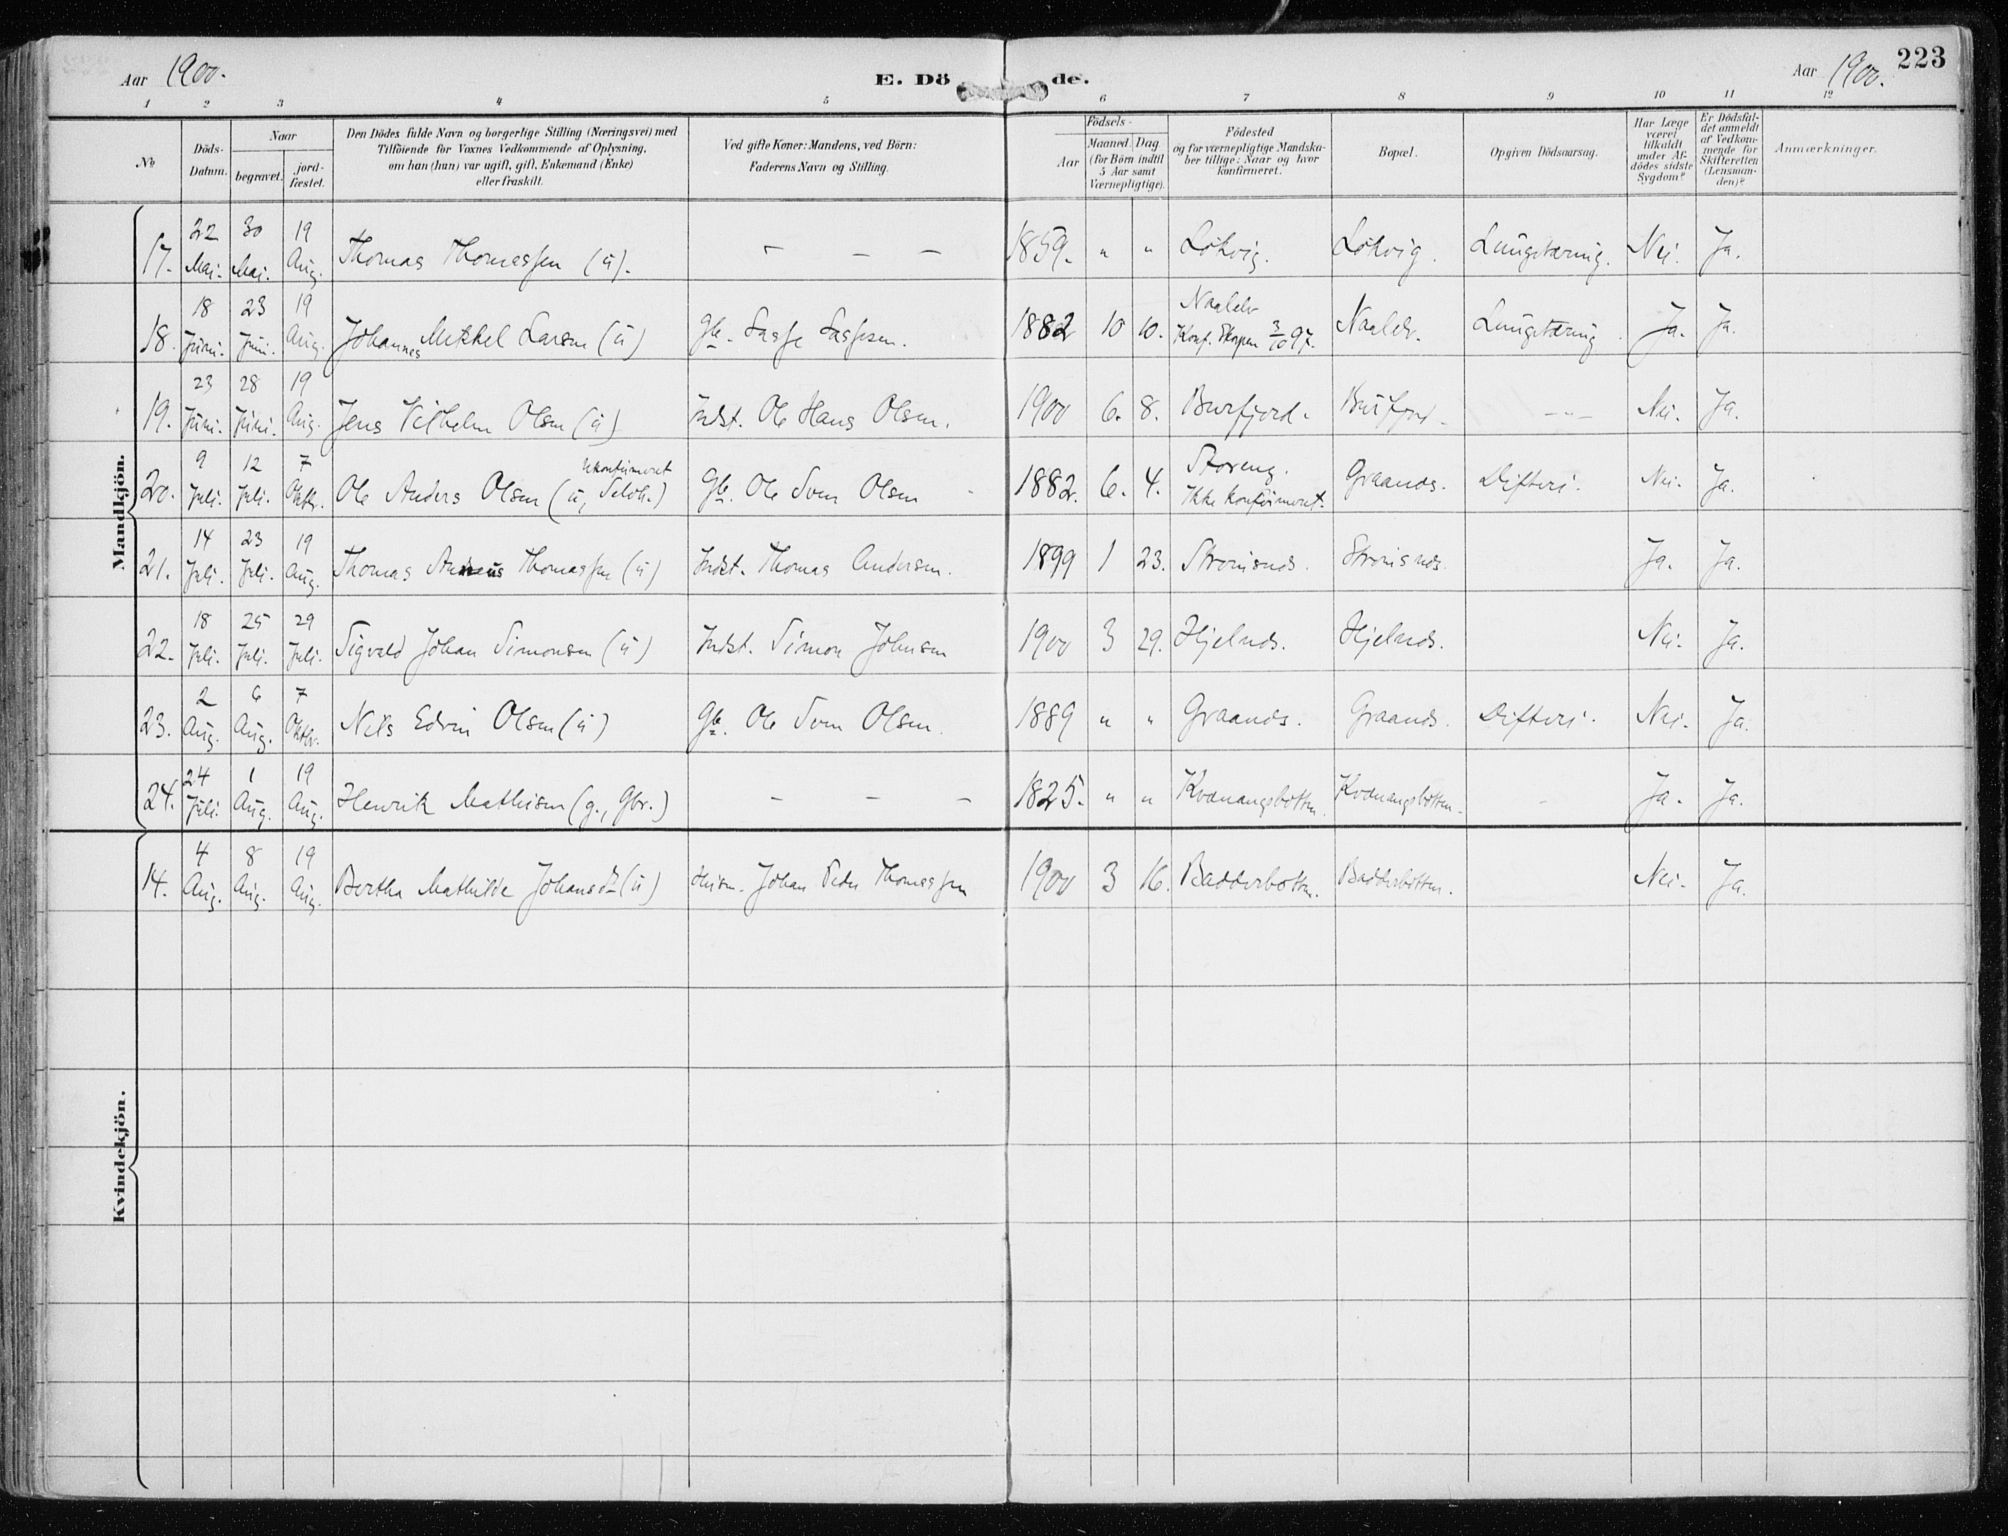 Aar 1900.
E. Dö de.
Aar 1900.
223
1 2 3 4 5 6 7 8 9 10 11 12
No
Döds-Datum.
Naar
begravet.
jord-fæstet.
Den Dödes fulde Navn og borgerlige Stilling (Næringsvei) med
Tilföiende for Voxnes Vedkommende af Oplysning,
om han (hun) var ugift, gift, Enkemand (Enke)
eller fraskilt.
Ved gifte Koner: Mandens, ved Börn:
Faderens Navn og Stilling.
Födsels-
Aar
Maaned. Dag
(for Börn indtil
5 Aar samt
Værnepligtige).
Födested
og for værnepligtige Mandska-
ber tillige: Naar og hvor
konfirmeret.
Bopæl.
Opgiven Dödsaarsag.
Har Læge
været
tilkaldt
under Af-
dödes sidste
Sygdom?
Er Dödsfal-
det anmeldt
af Vedkom-
mende for
Skifteretten
(Lensman-
den)?
Anmærkninger.
Mandkjön.
17. 22 Mai. 30 Mai. 19 Aug. Thomas Thomassen (ú). – – – 1859. " " Løkvig. Løkvig. Lungetæring. Nei. Ja.
18. 18 Juni. 23 Juni. 19 Aug. Johannes Mikkel Larsen (ú) Gbr. Lasse Lassesen. 1882 10 10. Naaleelv Konf. Skorpen 3/10 97. Naalelv. Lungetæring. Ja. Ja.
19. 23 Juni. 28 Juni. 19 Aug. Jens Vilhelm Olsen (ú) Indst. Ole Hans Olsen. 1900 6. 8. Burfjord. Burfjord. – " – Nei. Ja.
20. 9 Juli. 12 Juli. 7 Oktbr. Ole Anders Olsen (ú, ukonfirmeret Selvh.) Gbr. Ole Sven Olsen 1882. 6. 4. Storeng. Ikke konfirmeret. Graanes. Difteri. Nei. Ja.
21. 14 Juli. 23 Juli. 19 Aug. Thomas Thomassen (ú) Indst. Thomas Andersen. 1899 1 23. Strømsnes. Strømsnes. Ja. Ja.
22. 18 Juli. 25 Juli. 29 Juli. Sigvald Johan Simonsen (ú) Indst. Simon Johnsen 1900 3 29. Hjelnes. Hjelnes. Nei. Ja.
23. 2 Aug. 6 Aug. 7 Oktbr. Nils Edvin Olsen (ú) Gbr. Ole Sven Olsen. 1889 " " Graanes. Graanes. Difteri. Nei. Ja.
24. 24 Juli. 1 Aug. 19 Aug. Henrik Mathisen (g., Gbr.) – – – 1825. " " Kvænangsbotten. Kvænangsbotten. – Ja. Ja.
Kvindekjön.
14. 4 Aug. 8 Aug. 19 Aug. Bertha Mathilde Johansdr (ú) Johan Peder Thomassen 1900 3 16. Badderbotten. Badderbotten. Nei. Ja.